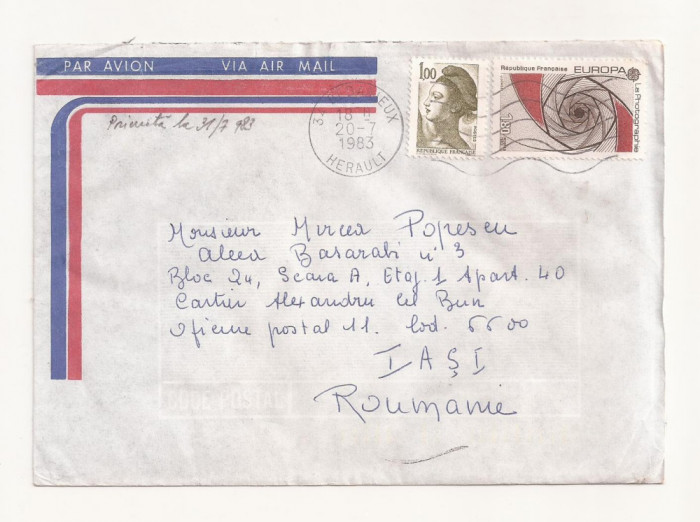 PAR AVION VIA AIR MAIL
18 H
20-7
1983
HERAULT
1,00
REPUBLIQUE FRANÇAISE
République Française EUROPA
La Photographie
1,80
Primită la 31/7 983
Monsieur Mircea Popescu
Aleea Basarabi n° 3
Bloc 24, Scara A, Etaj 1 Apart. 40
Cartier Alexandru cel Bun
Oficiul postal 11. Cod. 6600
IAŞI
Roumanie
CODE POSTAL